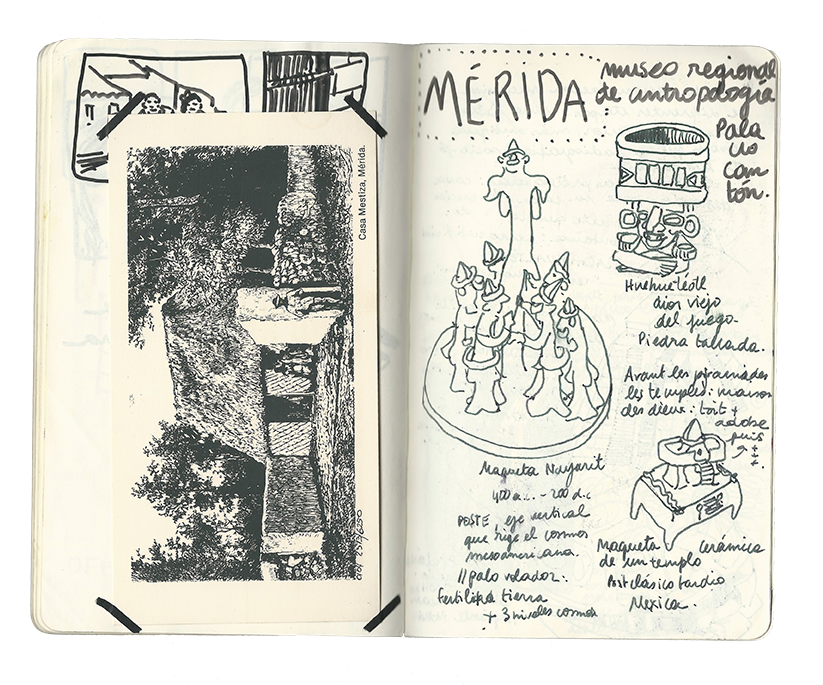 Casa Mestiza, Mérida.
MÉRIDA
museo regional
de antropología
Pala
cio
can
tón.
Huehuetéotl
dios viejo
del fuego.
Piedra tallada.
Avant les pyramides
les temples: maison
des dieux: toit +
adobe
puis
+
+
+.
Maqueta Nayarit
400 a.c. - 200 d.c
POSTE, eje vertical
que rige el cosmos
mesoamericana.
// palo volador:
fertilidad tierra
+ 3 niveles cosmos
Maqueta cerámica
de un templo
Postclásico tardío
Mexica.